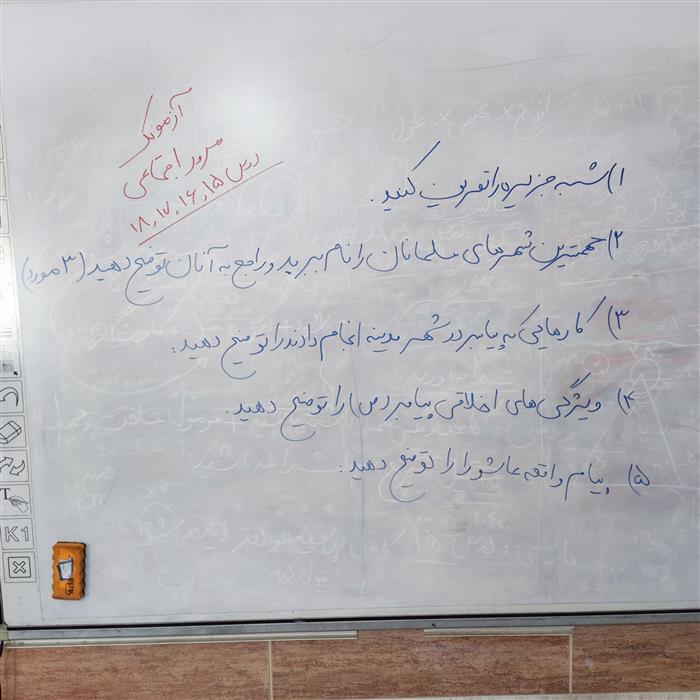 آزمونک
مرور اجتماعی
درس ۱۵، ۱۶، ۱۷، ۱۸
۱) شبه جزیره را تعریف کنید.
۲) مهمترین شهرهای مسلمانان را نام ببرید و راجع به آنان توضیح دهید (۳ مورد)
۳) کارهایی که پیامبر در شهر مدینه انجام دادند را توضیح دهید:
۴) ویژگی های اخلاقی پیامبر (ص) را توضیح دهید.
۵) پیام واقعه عاشورا را توضیح دهید:
T
K1